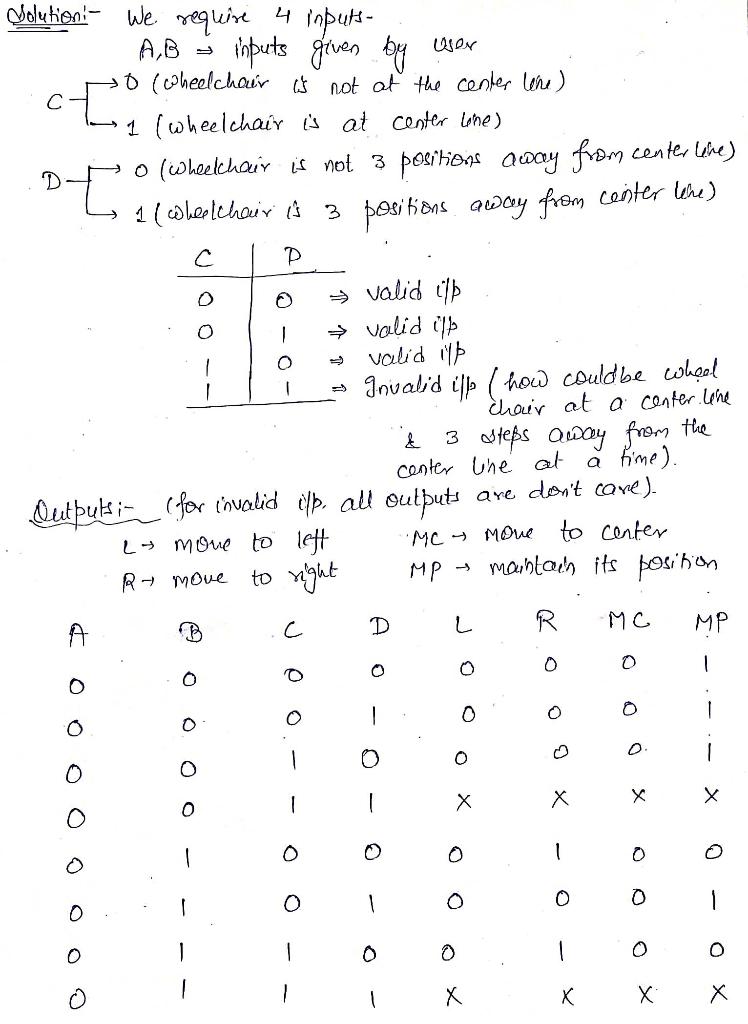 Solution:- We require 4 inputs-
A,B ⇒ inputs given by user
C → 0 (wheelchair is not at the center line)
→ 1 (wheelchair is at center line)
D → 0 (wheelchair is not 3 positions away from center line)
→ 1 (wheelchair is 3 positions away from center line)
C D
0 0 ⇒ valid i/p
0 1 ⇒ valid i/p
1 0 ⇒ valid i/p
1 1 ⇒ Invalid i/p (how could be wheel
chair at a center line
& 3 steps away from the
center line at a time).
Outputs:- (for invalid i/p. all outputs are don't care).
L → move to left MC → move to center
R → move to right MP → maintain its position
A B C D L R MC MP
0 0 0 0 0 0 0 1
0 0 0 1 0 0 0 1
0 0 1 0 0 0 0 1
0 0 1 1 X X X X
0 1 0 0 0 1 0 0
0 1 0 1 0 0 0 1
0 1 1 0 0 1 0 0
0 1 1 1 X X X X